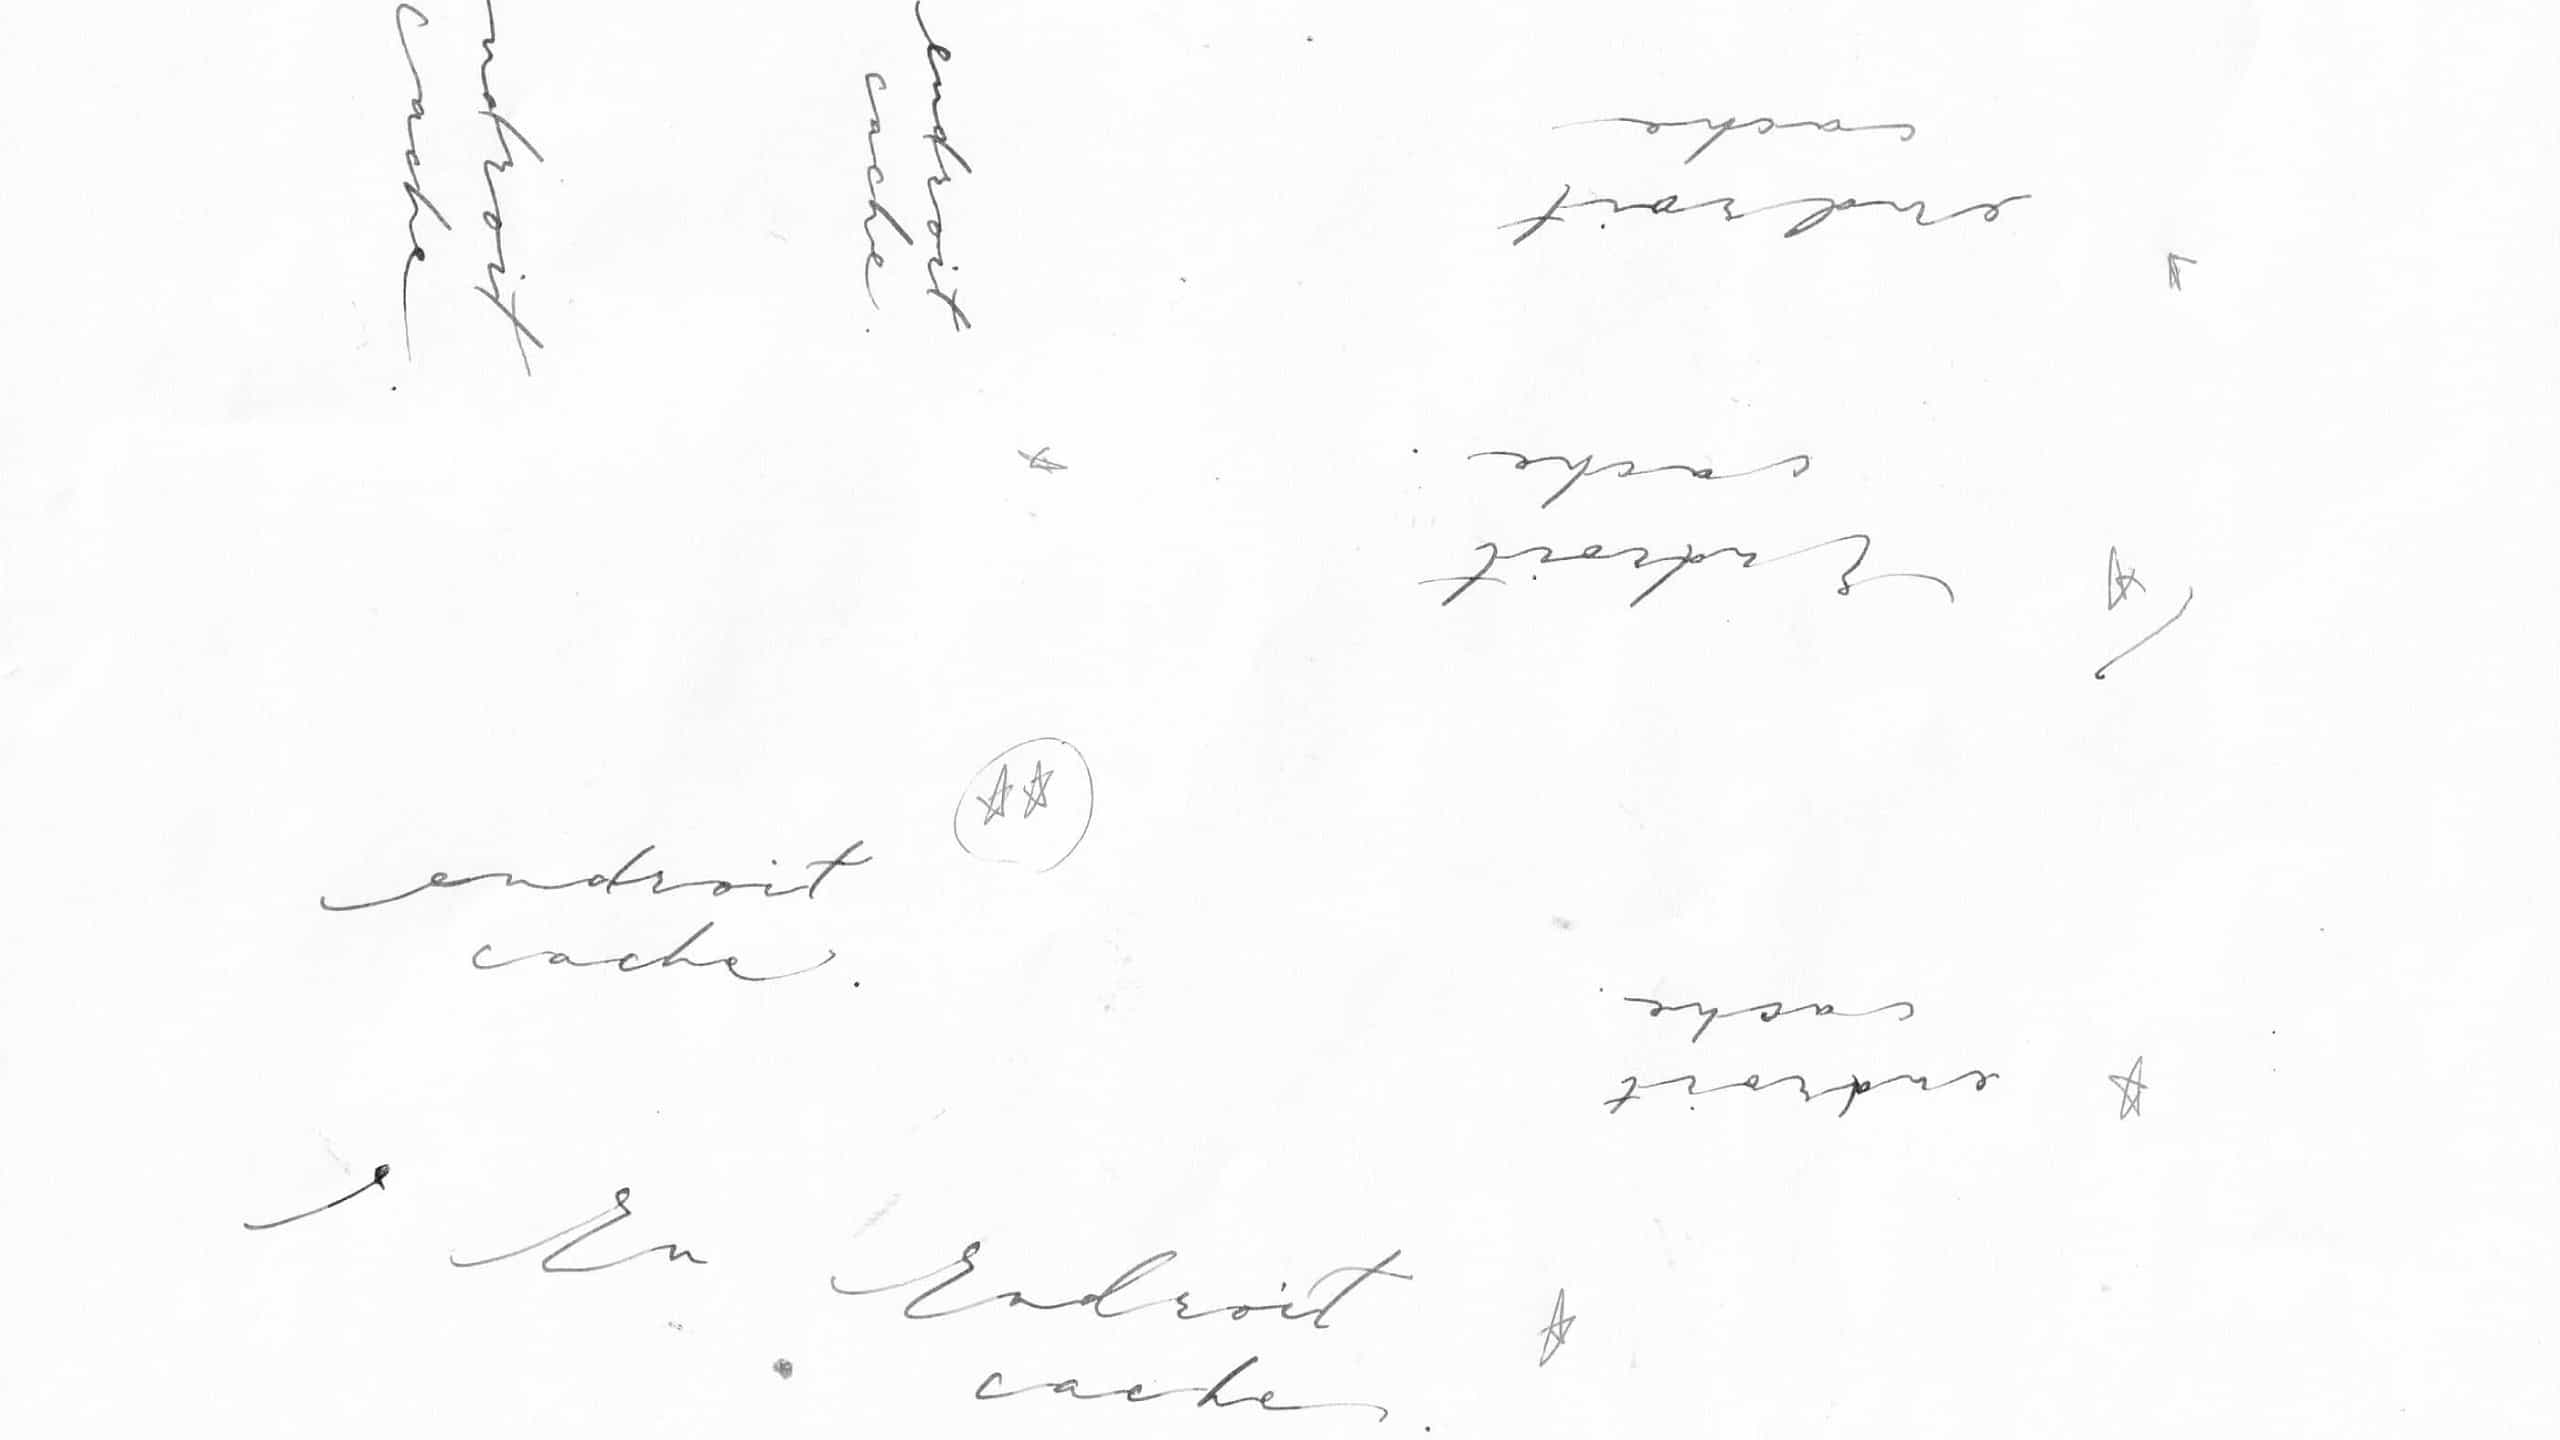 endroit
cache.
endroit
cache.
endroit
cache
Endroit
cache.
endroit
cache.
endroit
cache.
e En Endroit
cache.